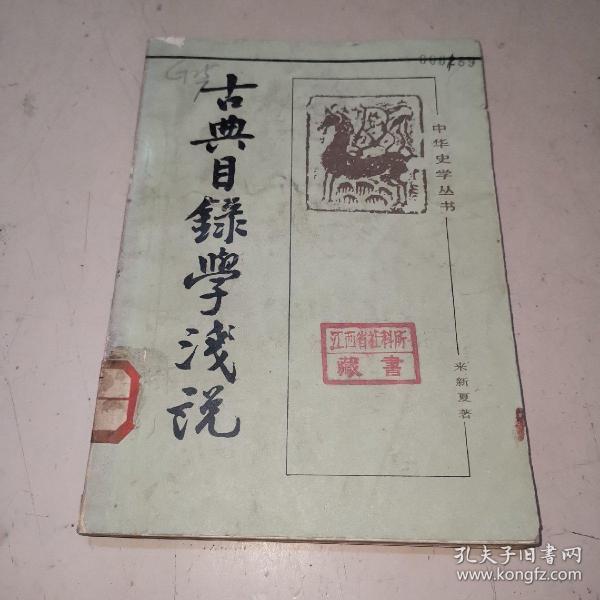 古典目錄学浅说
中华史学丛书
来新夏著
江西省社科所
藏書
孔夫子旧书网
www.kongfz.com